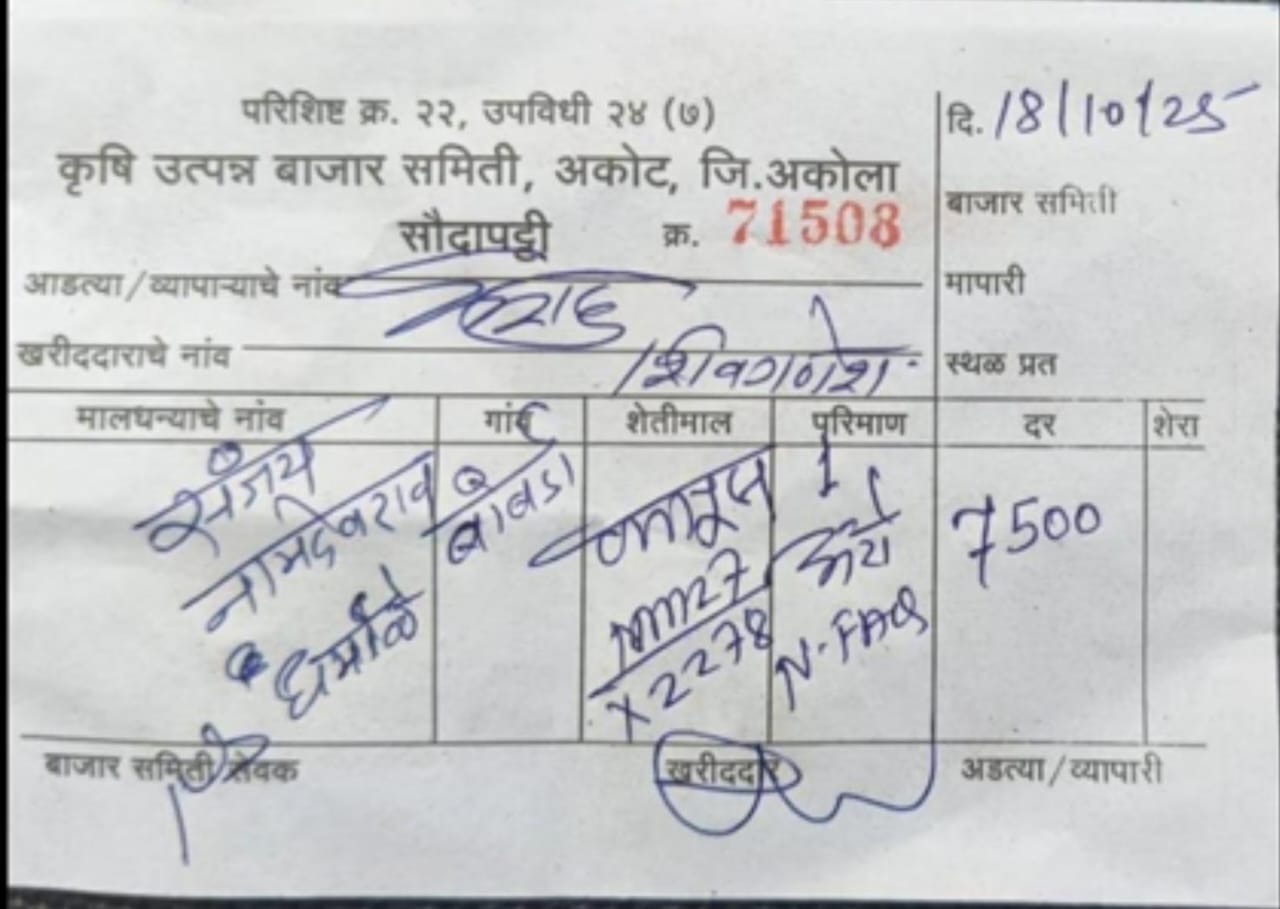 परिशिष्ट क्र. २२, उपविधी २४ (७)
दि. 18/10/25
कृषि उत्पन्न बाजार समिती, अकोट, जि.अकोला
बाजार समिती
सौदापट्टी क्र. 71508
आडत्या/व्यापाऱ्याचे नांव
मापारी
खरीददाराचे नांव शिवगणेश
स्थळ प्रत
मालधन्याचे नांव गांव शेतीमाल परिमाण दर शेरा
संजय नामदेवराव
7500
MM27
X2278 N-FAQ
बाजार समिती सेवक खरीददार अडत्या/व्यापारी